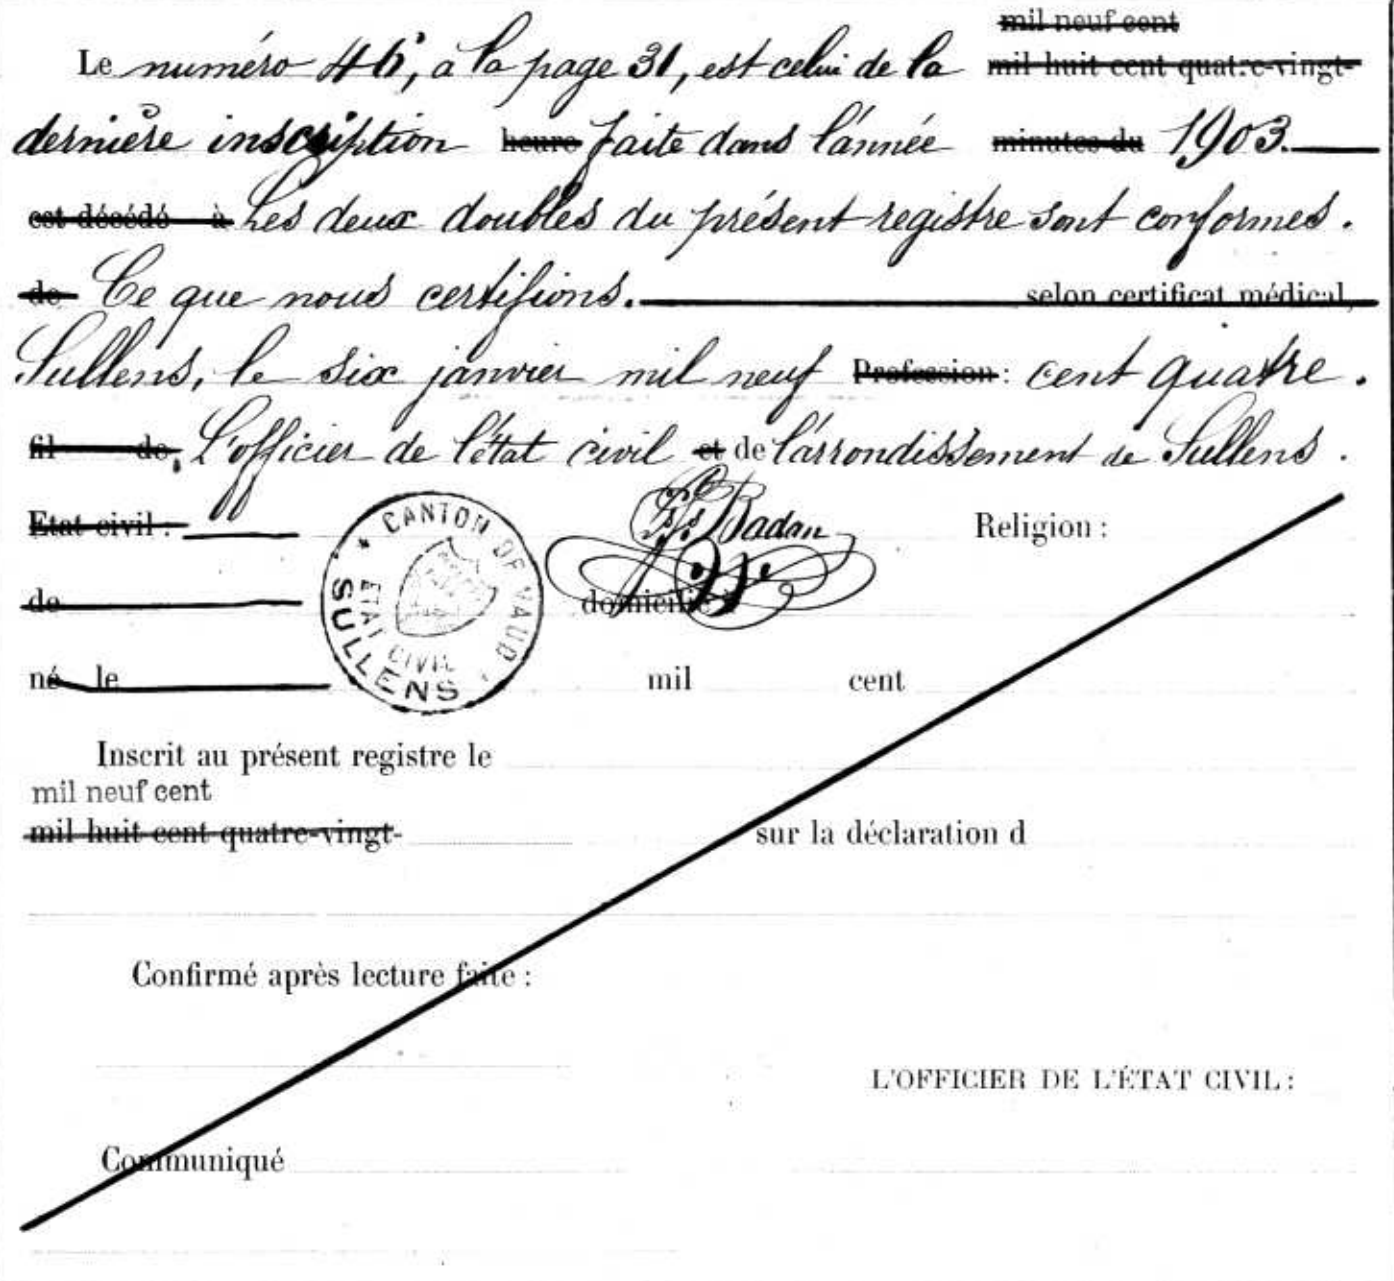 mil neuf cent
Le numéro 46, à la page 31, est celui de la mil huit cent quatre-vingt-
dernière inscription heure faite dans l'année minutes du 1903.
est décédé à Les deux doubles du présent registre sont conformes.
de Ce que nous certifions. selon certificat médical,
Sullens, le six janvier mil neuf Profession: cent quatre.
fil de, L'officier de l'état civil et de l'arrondissement de Sullens.
Etat civil: Badan Religion:
CANTON DE VAUD
ETAT CIVIL
SULLENS
de domicilié
né le mil cent
Inscrit au présent registre le
mil neuf cent
mil huit cent quatre-vingt- sur la déclaration d
Confirmé après lecture faite:
L'OFFICIER DE L'ÉTAT CIVIL:
Communiqué